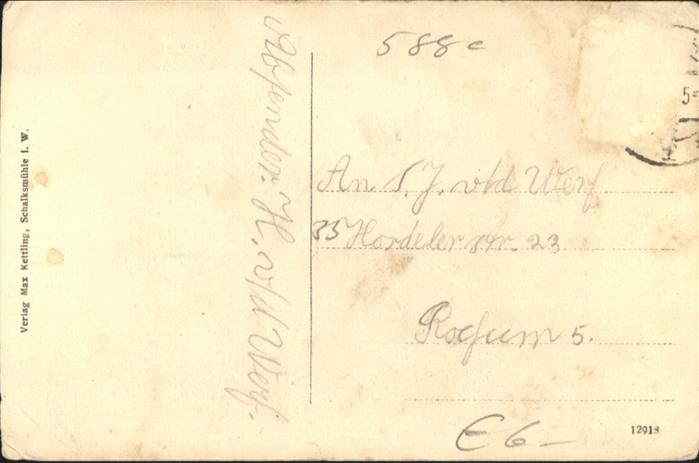 588c
Absender: H. v/d Werf.
An S. J. v/d Werf.
35 Hordelerstr. 23
Bochum 5.
€ 6-
Verlag Max Kettling, Schalksmühle i. W.
12918
5-